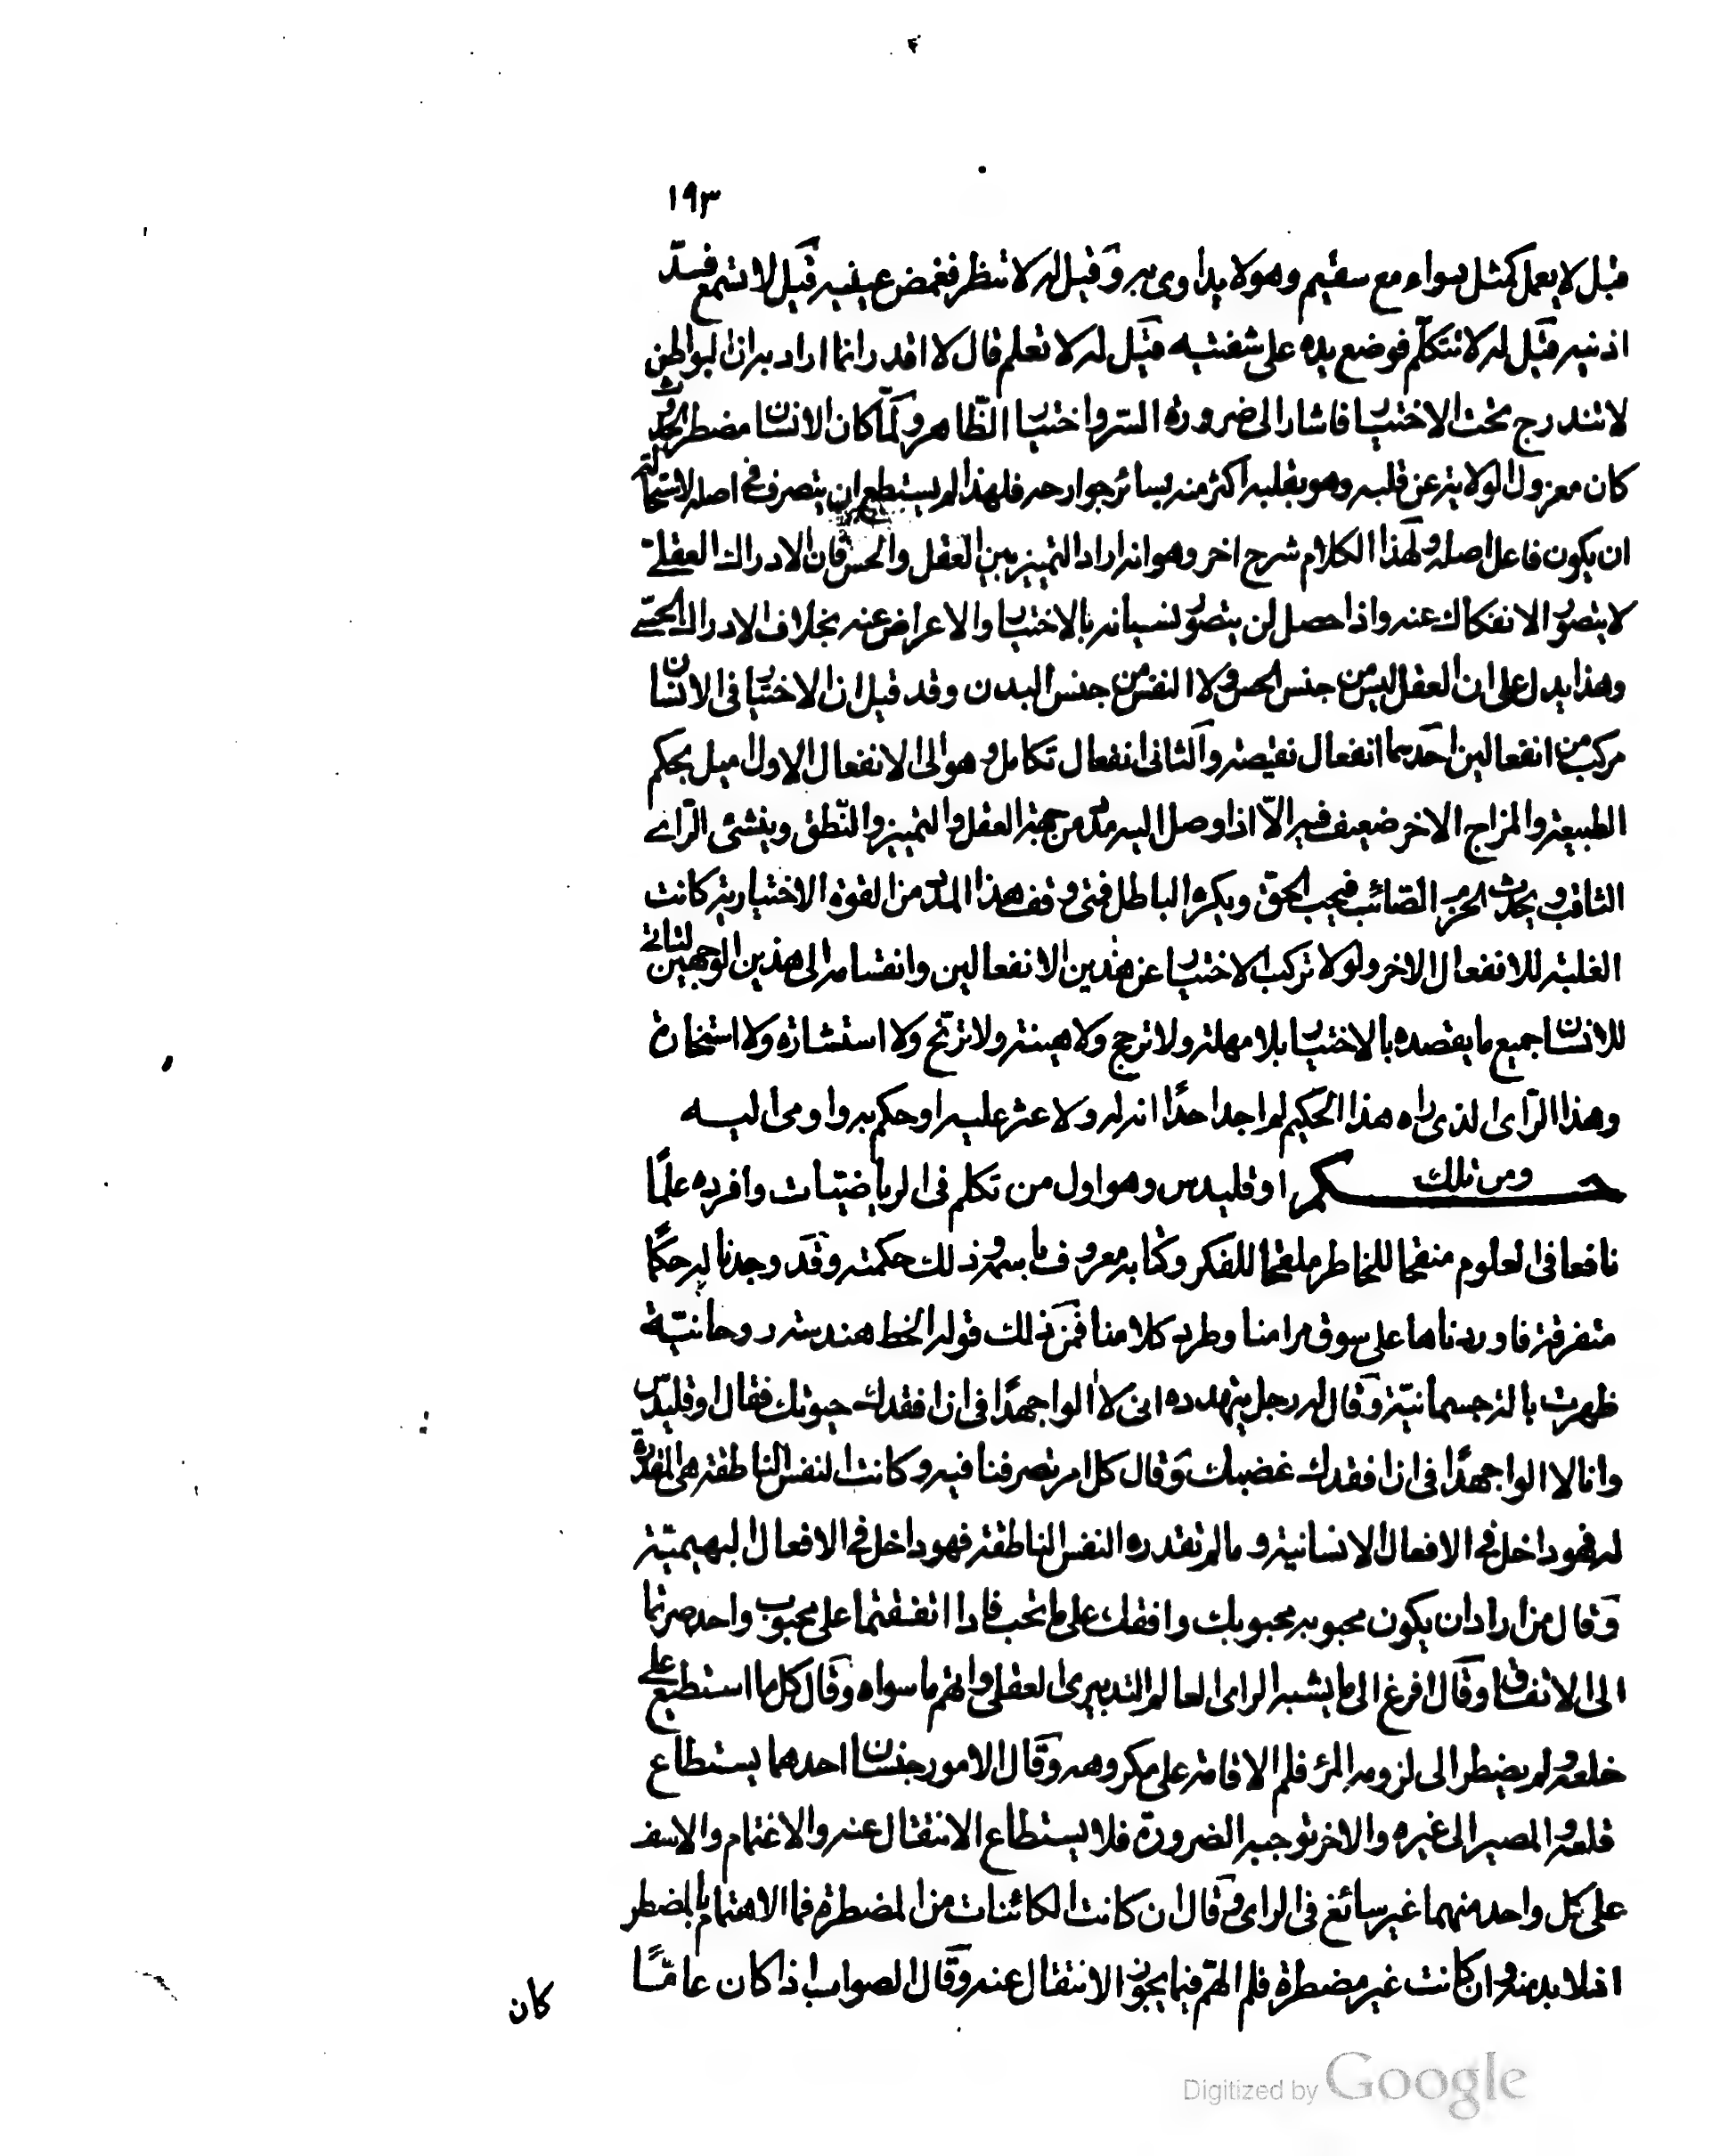 ١٩٣
قبل لا يعمل كمثل دواء مع سقيم وهو لا يداوى به وقيل له لا تنظر فغمض عينيه قيل لا تسمع فسدّ
اذنيه قيل له لا تتكلّم فوضع يده على شفتيه قيل له لا تعلم قال لا اقدر انما اراد به ان البواطن
لا تندرج تحت الاختيار فاشار الى ضرورة السر واختيار الظّاهر ولمّا كان الانسان مضطر الحدوث
كان معزول الولاية عن قلبه وهو بقلبه اكثر منه بسائر جوارحه فلهذا لم يستطع ان يتصرف فى اصله لاستحالة
ان يكون فاعل اصله ولهذا الكلام شرح اخر وهو انه اراد التميز بين العقل والحس فان الادراك العقلى
لا يتصور الانفكاك عنه واذا حصل لن يتصور نسيانه بالاختيار والاعراض عنه بخلاف الادراك الحسّى
وهذا يدل على ان العقل ليس من جنس الحس ولا النفس من جنس البدن وقد قيل ان الاختيار فى الانسان
مركب من انفعالين احدهما انفعال نقيصة والثانى انفعال تكامل وهو الى الانفعال الاول اميل بحكم
الطبيعة والمزاج الاخر ضعيف فيه الّا اذا وصل اليه مدد من جهة العقل والتميز والنّطق وينشئ الرّاى
الثاقب ويحدث الحزم الصّائب فيحب الحقّ ويكره الباطل فمتى وقف هذا المدد من القوة الاختيارية كانت
الغلبة للانفعال الاخر ولولا تركب الاختيار عن هذين الانفعالين وانقسامه الى هذين الوجهين لتاتى
للانسان جميع ما يقصده بالاختيار بلا مهلة ولا ترجح ولا هينة ولا تريّح ولا استشارة ولا استخارة
وهذا الرّاى الذى راه هذا الحكيم لم اجد احدًا انبه له ولا عثر عليه او حكم به واومى اليه
ومن تلك حكم اوقليدس وهو اول من تكلم فى الرياضيّات وافرده علمًا
نافعا فى العلوم منقحا للخاطر ملقحا للفكر وكتابه معروف باسمه وذلك حكمته وقد وجدنا له حكمًا
متفرقة فاوردناها على سوق مرامنا وطرد كلامنا فمن ذلك قوله الخط هندسة روحانيّة
ظهرت بالة جسمانيّة وقال له رجل يتهدده انى لا الوا جهدًا فى ان افقدك حيوتك فقال اوقليدس
وانا لا الوا جهدًا فى ان افقدك غضبك وقال كل امر تصرفنا فيه وكانت النفس الناطقة هى المقدرة
له فهو داخل فى الافعال الانسانية وما لم تقدره النفس الناطقة فهو داخل فى الافعال البهيميّة
وقال من اراد ان يكون محبوبه محبوبك وافقك على ما تحب فاذا اتفقتما على محبوب واحد صرتما
الى الاتفاق وقال افرغ الى ما يشبه الراى العالم التدبيرى العقلى واتهم ما سواه وقال كل ما استطيع على
خلعه ولم يضطر الى لزومه المرء فلم الاقامة على مكروهه وقال الامور جنسان احدهما يستطاع
قلعه والمصير الى غيره والاخر توجبه الضرورة فلا يستطاع الانتقال عنه والاغتمام والاسف
على كل واحد منهما غير سائغ فى الراى وقال ان كانت الكائنات من المضطرة فما الاهتمام بالمضطر
اذ لا بد منه وان كانت غير مضطرة فلم الهمّ فيما يجوز الانتقال عنه وقال الصواب اذا كان عامّا
كان
Digitized by Google